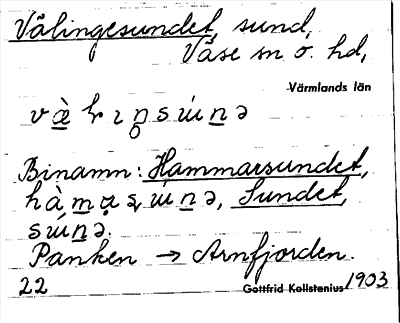 Välingesundet, sund,
Väse sn o. hd,
Värmlands län
væ̀lıŋsuńnə
Binamn: Hammarsundet,
hàmaṣuńnə, Sundet,
suńnə.
Panken → Arnfjorden.
22 Gottfrid Kallstenius 1903